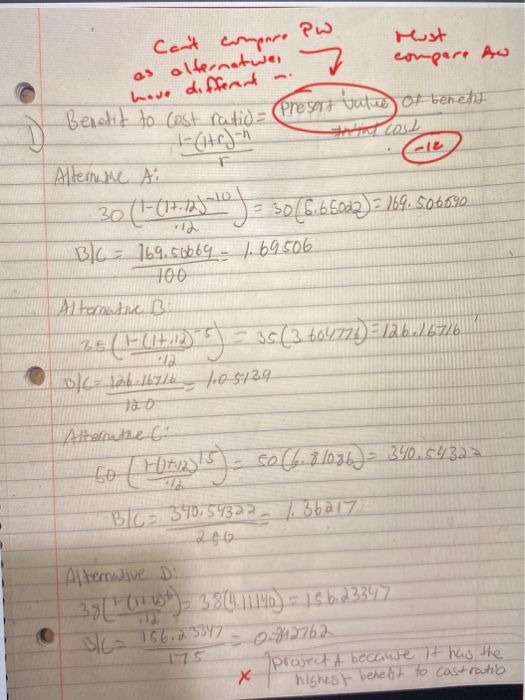 Can't compare PW
as alternatives
have different n.
Must
compare AW
1) Benefit to Cost ratio = Present Value of benefit
cost
1-(1+r)^-n
r
-12
Alternative A:
30 (1-(1+.12)^-10 / .12) = 30(5.65022) = 169.506690
B/C = 169.50669 / 100 = 1.69506
Alternative B:
35 (1-(1+.12)^-5 / .12) = 35(3.604776) = 126.16716
B/C = 126.16716 / 120 = 1.05139
Alternative C:
50 (1-(1+.12)^15 / .12) = 50(6.81086) = 340.54322
B/C = 340.54322 / 250 = 1.36217
Alternative D:
38 (1-(1+.12)^6 / .12) = 38(4.11140) = 156.23347
B/C = 156.23347 / 175 = 0.892762
x project A because it has the
highest benefit to cost ratio